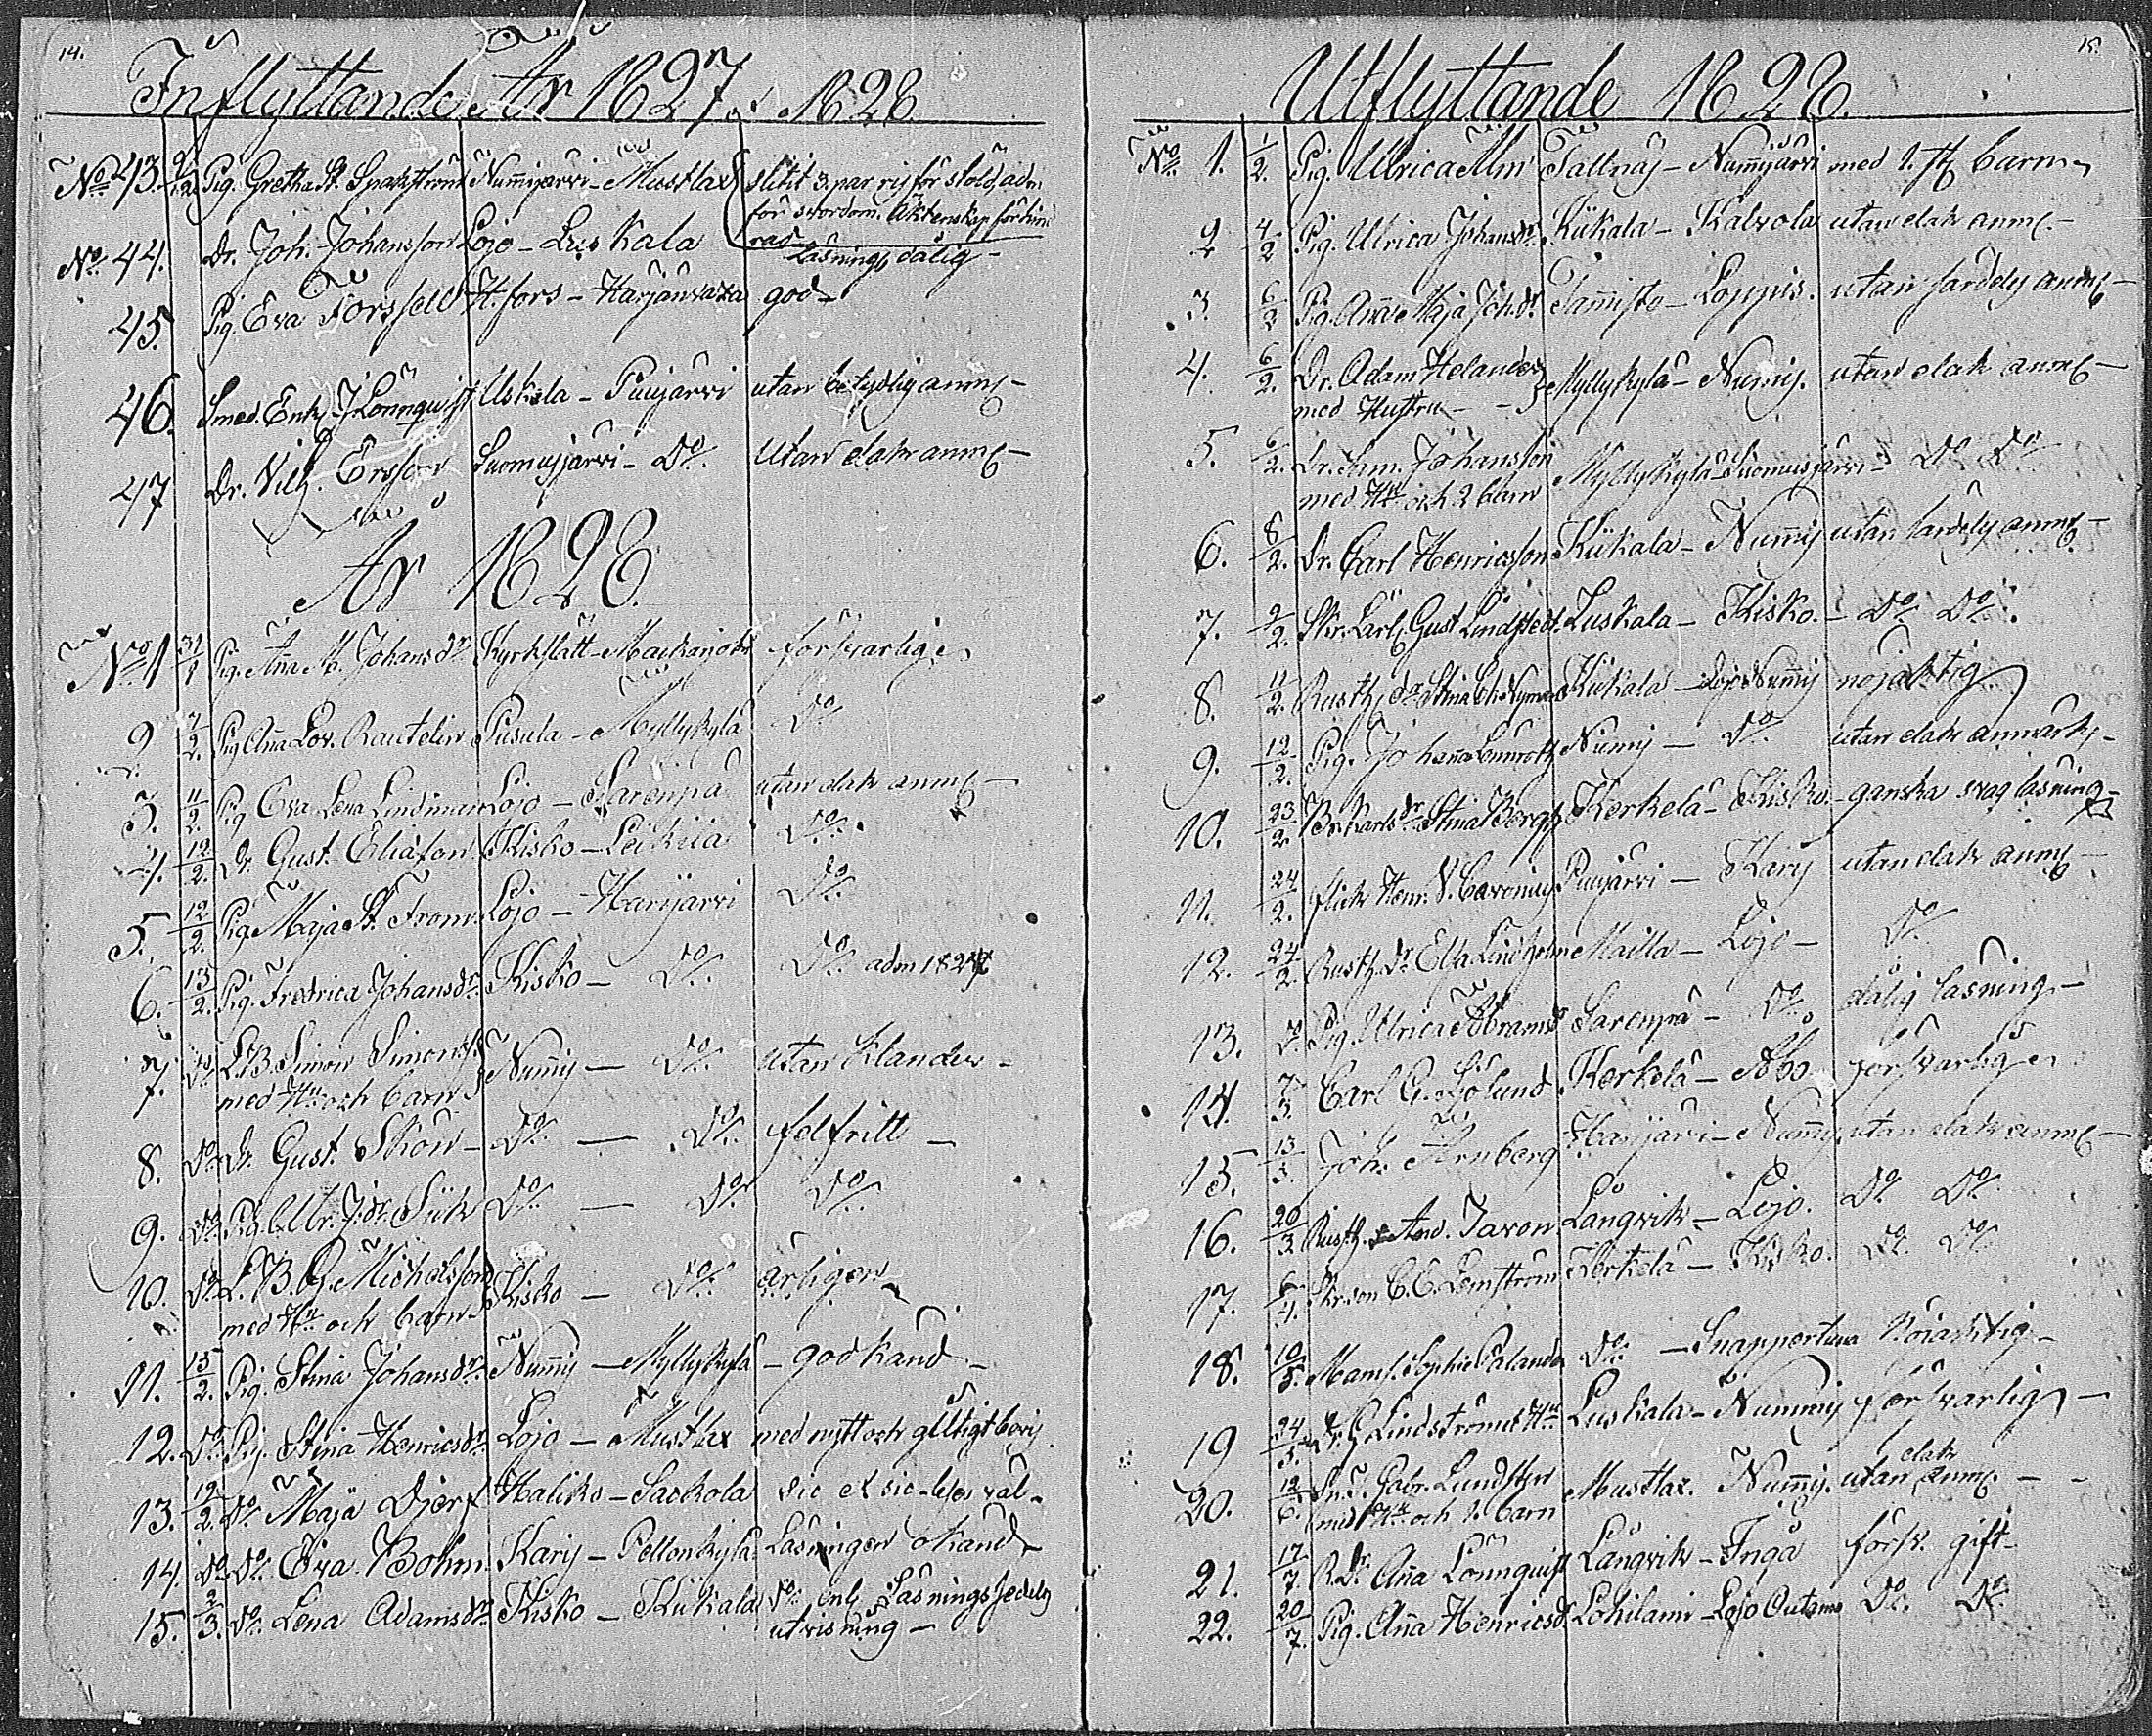 14.
Inflyttande År 1827. 1828.
No 43. Pig. Gretha St. Spakström Nummijärvi - Mustlax slitit 3 par rij för stöld adm
för svordom. Äktenskap förhind
rad
No 44. Dr. Joh. Johansson Lojo - Luskala Läsning dålig -
45. Pig. Eva Forssell H.fors - Harjanvaxa god -
46. Smed. Enk. J. Lönnqvist Uskela - Puujärvi utan betydlig anm -
47 Dr. Vilh. Ersson Suomusjärvi - Do. Utan elak anm -
År 1828.
No 1 31/1 Pig. Aña M. Johansdr. Kyrkslätt - Maikanjoki försvarlig
2 7/2. Pig Aña Lov. Rautelin Pusula - Myllykylä Do
3. 11/2. Pig Eva Lena Lindman Lojo - Sarenpä utan elak anm -
4. 12/2. Dr. Gust. Eliasson Kisko - Leikila Do.
5. 12/2. Pig. Maja St. From Lojo - Harijärvi Do
6. 13/2. Pig. Fredrica Johansdr. Kisko - Do. Do. adm 1827
7. Do L.B. Simon Simonss. Num̃ij - Do. utan klander -
med Hu och barn
8. Do Dr. Gust. Skön - Do. - Do. felfritt -
9. Do Pig. Ulr. J.dr. Siik Do. - Do Do.
10. Do L.B. G. Michelsson Kisko - Do. ärligen
med Hu och barn
11. 15/2. Pig. Stina Johansdr. Num̃ij - Myllykylä - god känd -
12. Do Pig. Stina Henricsdr. Lojo - Mustlax med nytt och giltigt bevij
13. 19/2. Do Maja Djerf Haliko - Sackola sic et sic - läser väl -
14. Do Do. Eva Bohm. Karij - Peltonkylä Läsningen okänd -
15. 2/3. Do. Lena Adamsdr. Kisko - Kiikala Do. enl. Läsningssedels
utvisning -
15.
Utflyttande 1828.
No 1. 1/2. Pig. Ulrica Alm Tallnäs - Num̃ijärvi med 1. barn
2 4/2 Pig. Ulrica Johansdr. Kiikala - Kalvola utan elak anm -
3. 6/2 Pig. Aña Maja Joh.dr. Tam̃isto - Loppis. utan särdeles anm -
4. 6/2. Dr. Adam Helander Myllykylä - Num̃ij. utan elak anm -
med Hustru - -
5. 6/2. Dr. Sam. Johansson Myllykylä - Suomusjärvi - Do Do
med Hu och 2 barn
6. 8/2. Dr. Carl Henricsson Kiikala - Num̃ij utan särdeles anm -
7. 9/2. Skr. Lärl. Gust Lindstedt. Luskala - Kisko. - Do. Do.
8. 11/2. Rusth. dr. Stina Nyman Kiikala - Num̃ij nöjaktig
9. 12/2. Pig. Johana Num̃ij - Do utan elak anmärk -
10. 23/2. Stina Berg Kerkelä - Kisko - ganska svag läsning -
11. 24/2. flick Henr. V. Cavonius Puujärvi - Karij utan elak anm -
12. 24/2. Rusth. Dr. Elsa Lindholm Mailla - Lojo - Do
13. Do. Pig. Ulrica Abramsdr. Sarenpä - Do. dålig läsning -
14. 7/3. Carl G. Sjölund Kerkelä - Åbo försvarlig
15. 13/3. Joh. Arnberg Harijärvi - Num̃ij. utan elak anm -
16. 20/3. Rusth. And. Favon. Långvik - Lojo. Do Do
17. 6/4. Skr. son C.E. Lemström Kerkelä - Kisko. Do. Do
18. 10/5. Mams. Sophie Palander Do. - Snappertuna Nöiaktig -
19 24/5. Lindström Hu Luskala - Num̃ij försvarlig -
20. 12/6. Gabr. Lundsten Mustlax. Num̃ij. utan elak anm. - -
med Hu och 1. barn
21. 17/7. R. Dr. Aña Lönnqvist Långvik - Ingå försv. gift -
22. 20/7. Pig. Aña Henricsdr. Lohilami - Lojo Outamo Do. Do.